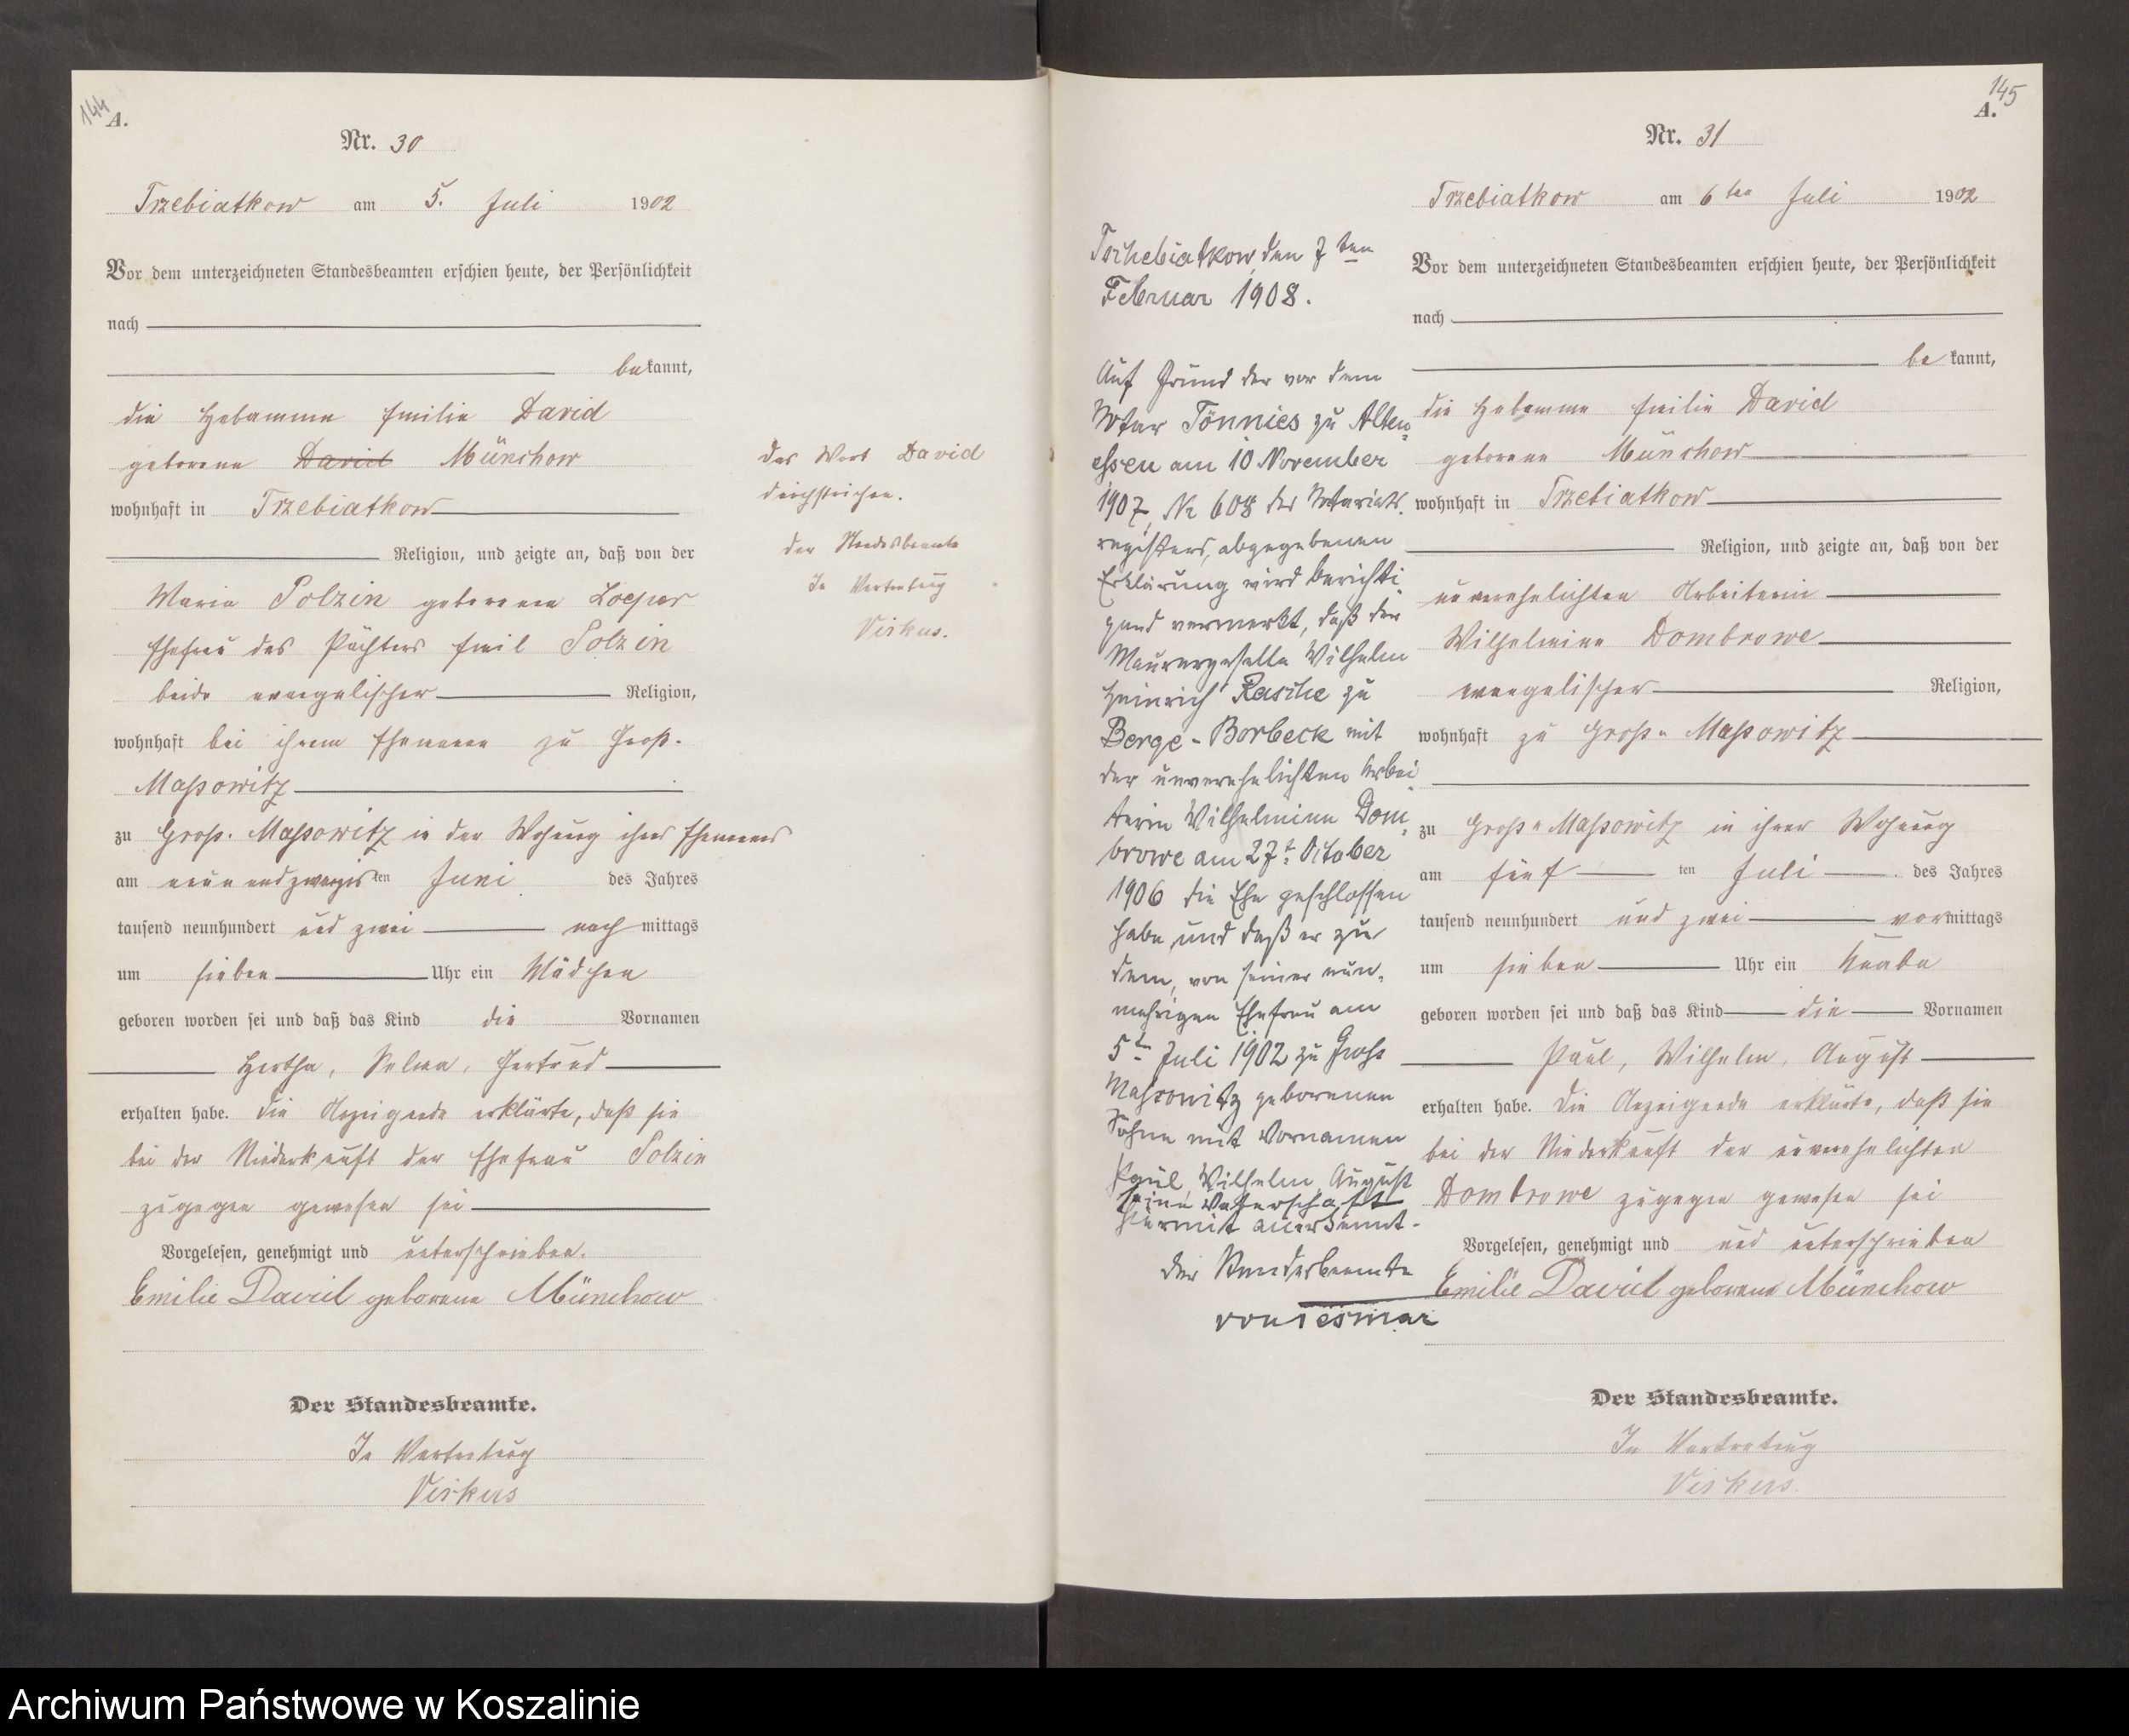 144
A.
Nr. 30
Trzebiatkow am 5. Juli 1902
Vor dem unterzeichneten Standesbeamten erschien heute, der Persönlichkeit
nach
bekannt,
die Hebamme Emilie David
geborene David Münchow
wohnhaft in Trzebiatkow
Religion, und zeigte an, daß von der
Maria Polzin geborenen Loeper
Ehefrau des Pächters Emil Polzin
beide evangelischer Religion,
wohnhaft bei ihrem Ehemann zu Groß-
Massowitz
zu Groß-Massowitz in der Wohnung ihres Ehemannes
am neunundzwanzigsten Juni des Jahres
tausend neunhundert und zwei nachmittags
um sieben Uhr ein Mädchen
geboren worden sei und daß das Kind die Vornamen
Hertha, Selma, Gertrud
erhalten habe. Die Anzeigende erklärte, daß sie
bei der Niederkunft der Ehefrau Polzin
zugegen gewesen sei
Vorgelesen, genehmigt und unterschrieben.
Emilie David geborene Münchow
Der Standesbeamte.
In Vertretung
Virkus
Das Wort David
durchstrichen.
Der Standesbeamte
In Vertretung
Virkus.
145
A.
Nr. 31
Trzebiatkow am 6ten Juli 1902
Vor dem unterzeichneten Standesbeamten erschien heute, der Persönlichkeit
nach
bekannt,
die Hebamme Emilie David
geborene Münchow
wohnhaft in Trzebiatkow
Religion, und zeigte an, daß von der
unverehelichten Arbeiterin
Wilhelmine Dombrowe
evangelischer Religion,
wohnhaft zu Groß-Massowitz
zu Groß-Massowitz in ihrer Wohnung
am fünften Juli des Jahres
tausend neunhundert und zwei vormittags
um sieben Uhr ein Knabe
geboren worden sei und daß das Kind die Vornamen
Paul, Wilhelm, August
erhalten habe. Die Anzeigende erklärte, daß sie
bei der Niederkunft der unverehelichten
Dombrowe zugegen gewesen sei
Vorgelesen, genehmigt und und unterschrieben
Emilie David geborene Münchow
Der Standesbeamte.
In Vertretung
Virkus.
Trzhebiatkow, den 7ten
Februar 1908.
Auf Grund der vor dem
Notar Tönnies zu Alten-
essen am 10 November
1907, Nr 608 des Notariats-
registers, abgegebenen
Erklärung wird berichti-
gend vermerkt, daß der
Maurergeselle Wilhelm
Heinrich Rasche zu
Berge-Borbeck mit
der unverehelichten Arbei-
terin Wilhelmine Dom-
browe am 27t October
1906 die Ehe geschlossen
habe und daß er zu
dem, von seiner nun-
mehrigen Ehefrau am
5ten Juli 1902 zu Gross
Massowitz geborenen
Sohne mit Vornamen
Paul Wilhelm August
seine Vaterschaft
hiermit anerkennt.
Der Standesbeamte
von Tesmar
Archiwum Państwowe w Koszalinie